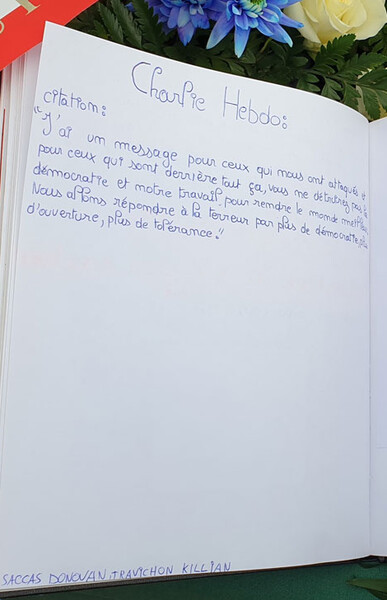 Charlie Hebdo:
citation:
"J'ai un message pour ceux qui nous ont attaqués et
pour ceux qui sont derrière tout ça, vous ne détruirez pas la
démocratie et notre travail pour rendre le monde meilleur
Nous allons répondre à la terreur par plus de démocratie, plus
d'ouverture, plus de tolérance."
SACCAS DONOVAN, TRAVICHON KILLIAN